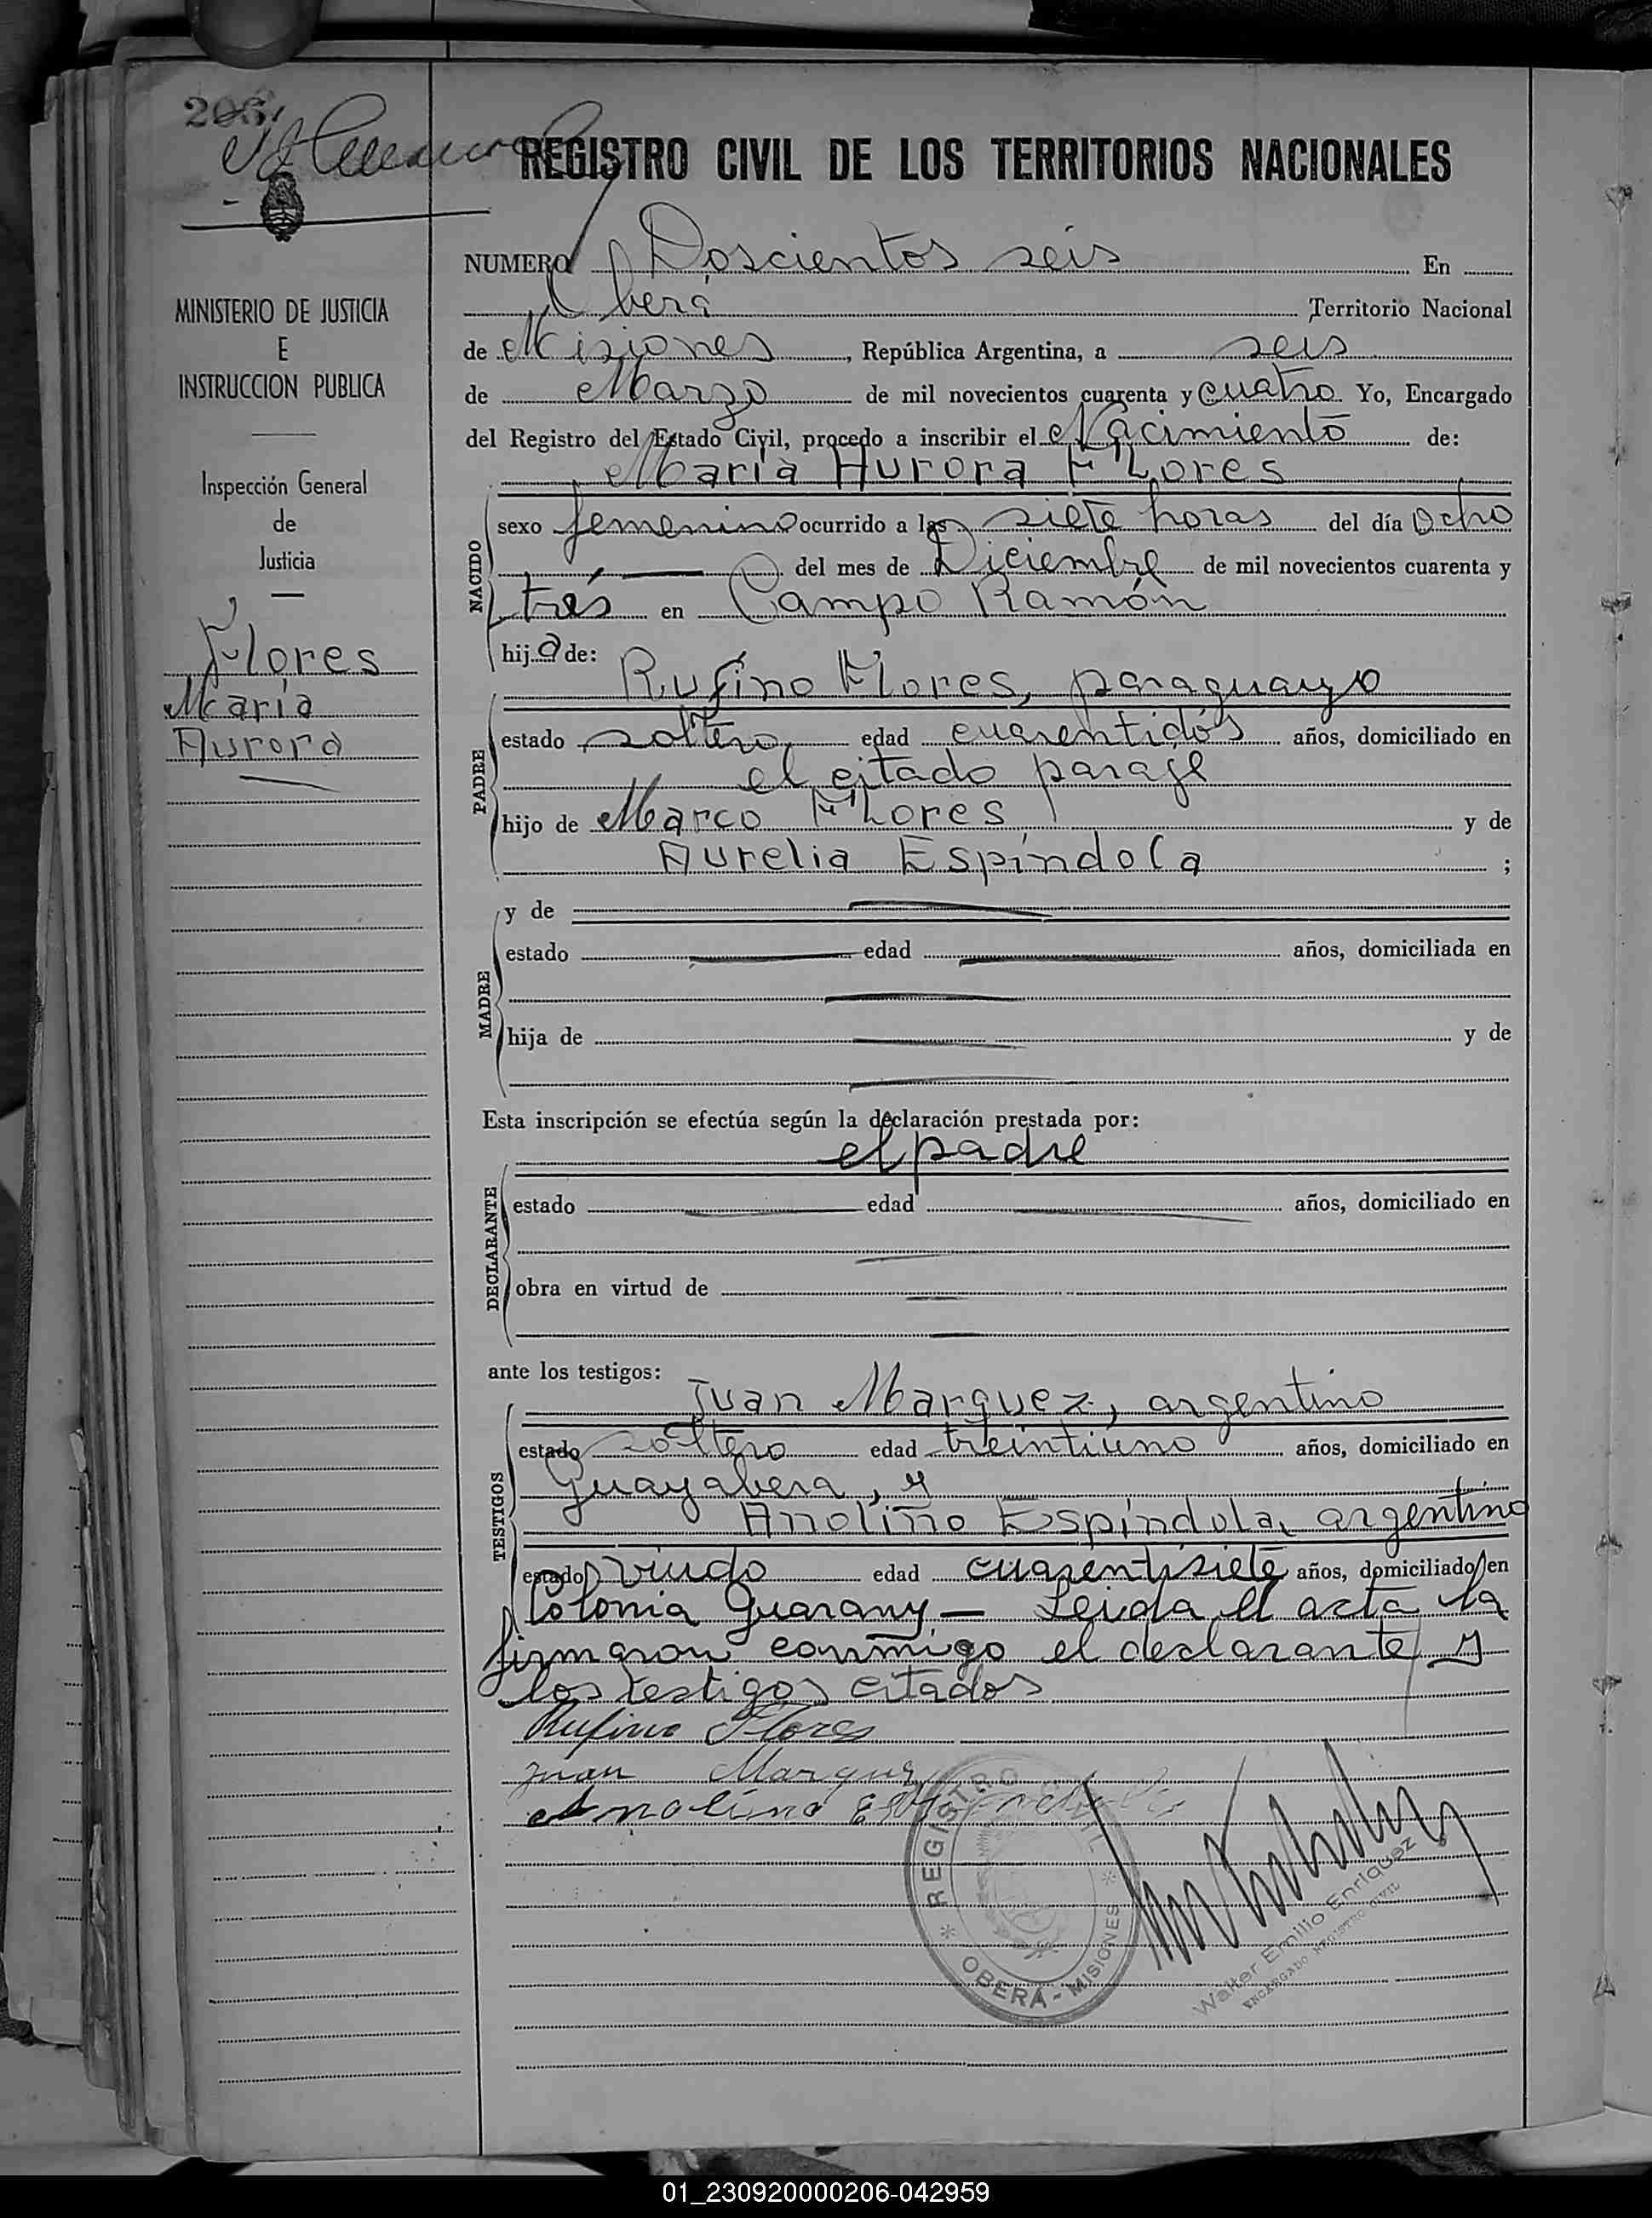 206
REGISTRO CIVIL DE LOS TERRITORIOS NACIONALES
MINISTERIO DE JUSTICIA
E
INSTRUCCION PUBLICA
Inspección General
de
Justicia
Flores
María
Aurora
NUMERO Doscientos seis En
Oberá Territorio Nacional
de Misiones, República Argentina, a seis
de Marzo de mil novecientos cuarenta y cuatro Yo, Encargado
del Registro del Estado Civil, procedo a inscribir el Nacimiento de:
María Aurora Flores
NACIDO
sexo femenino ocurrido a las siete horas del día Ocho
del mes de Diciembre de mil novecientos cuarenta y
trés en Campo Ramón
hija de:
Rufino Flores, paraguayo
PADRE
estado soltero, edad cuarentidós años, domiciliado en
el citado paraje
hijo de Marco Flores y de
Aurelia Espíndola ;
MADRE
y de
estado edad años, domiciliada en
hija de y de
Esta inscripción se efectúa según la declaración prestada por:
el padre
DECLARANTE
estado edad años, domiciliado en
obra en virtud de
ante los testigos:
Juan Marquez, argentino
TESTIGOS
estado soltero edad treintiuno años, domiciliado en
Guayabera, y
Anolino Espíndula, argentino
estado viudo edad cuarentisiete años, domiciliado en
Colonia Guarany — Leida el acta la
firmaron conmigo el declarante y
los testigos citados
Rufino Flores
Juan Marquez
REGISTRO CIVIL
OBERÁ - MISIONES
Walter Emilio Enriquez
ENCARGADO REGISTRO CIVIL
01_230920000206-042959